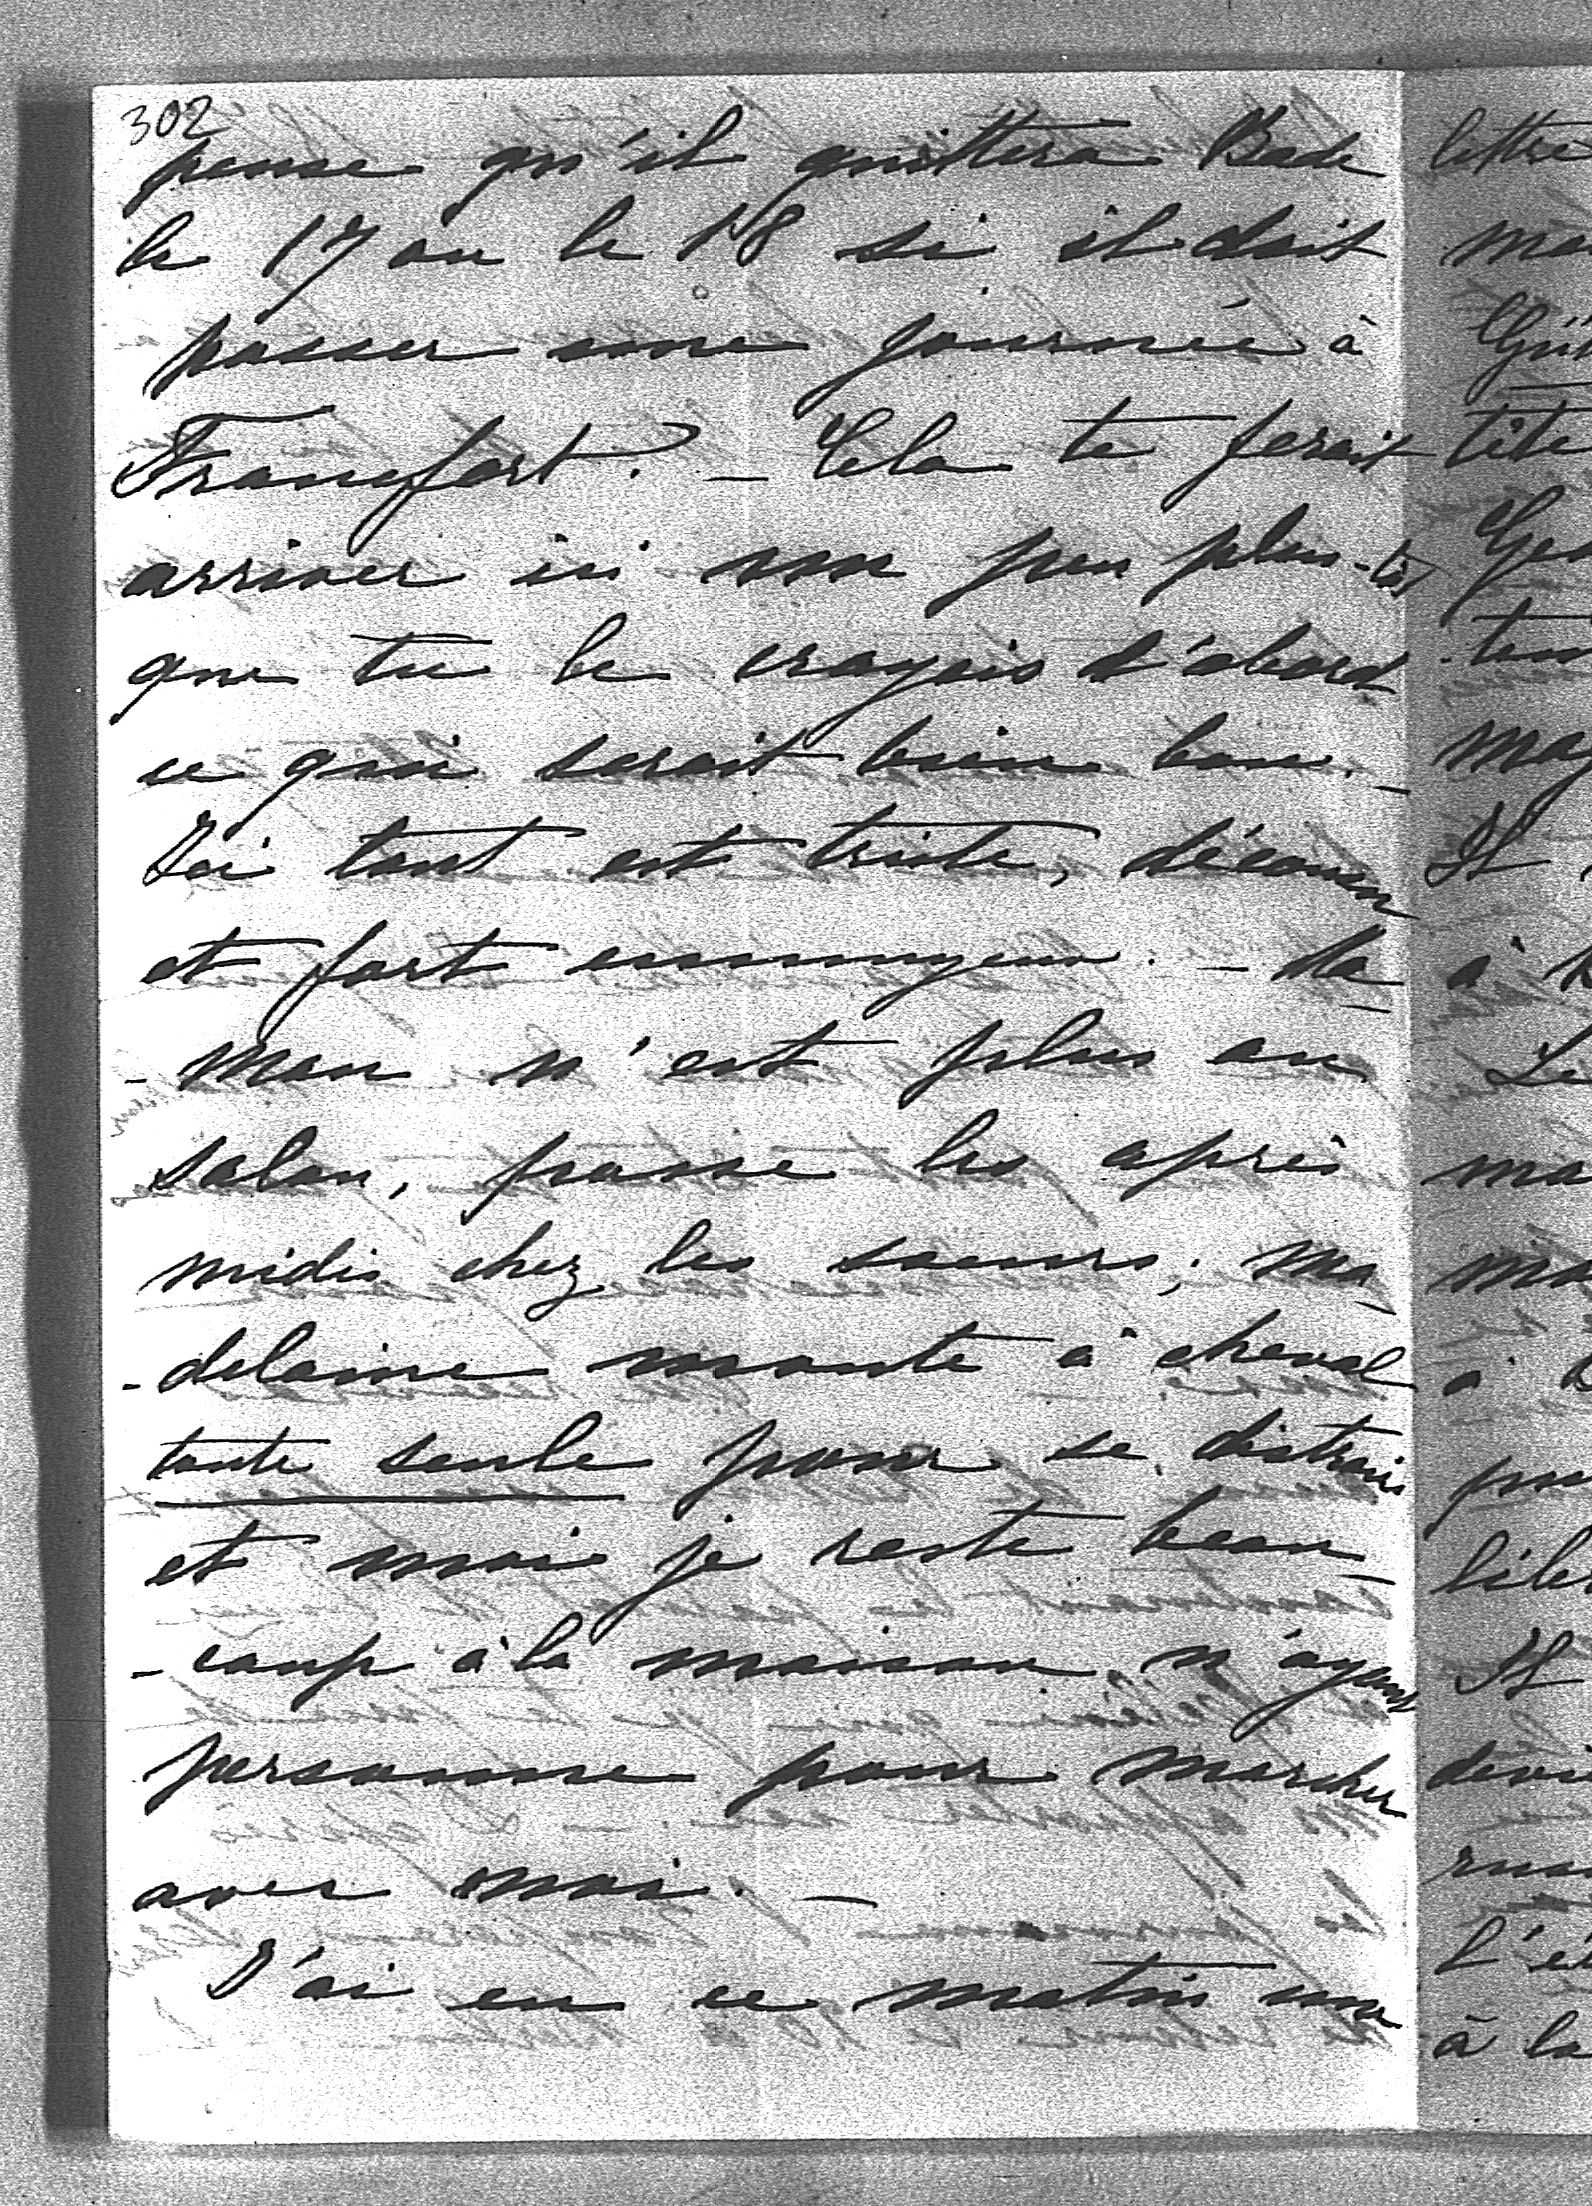 302
pense qu'il quittera Bade
le 17 ou le 18 si il doit
passer une journée à
Francfort? — Cela te ferait
arriver ici un peu plus-tôt
que tu le croyais d'abord
ce qui serait bien bon. —
Ici tout est triste, décousu
et fort ennuyeux. — Ma-
-man n'est plus au
salon, passe les après
midis chez les soeurs; Ma-
-delaine monte à cheval
toute seule pour se distraire
et moi je reste beau-
-coup à la maison n'ayant
personne pour marcher
avec moi. —
J'ai eu ce matin une
lettre
tête
Il
à
Le
Il
à la